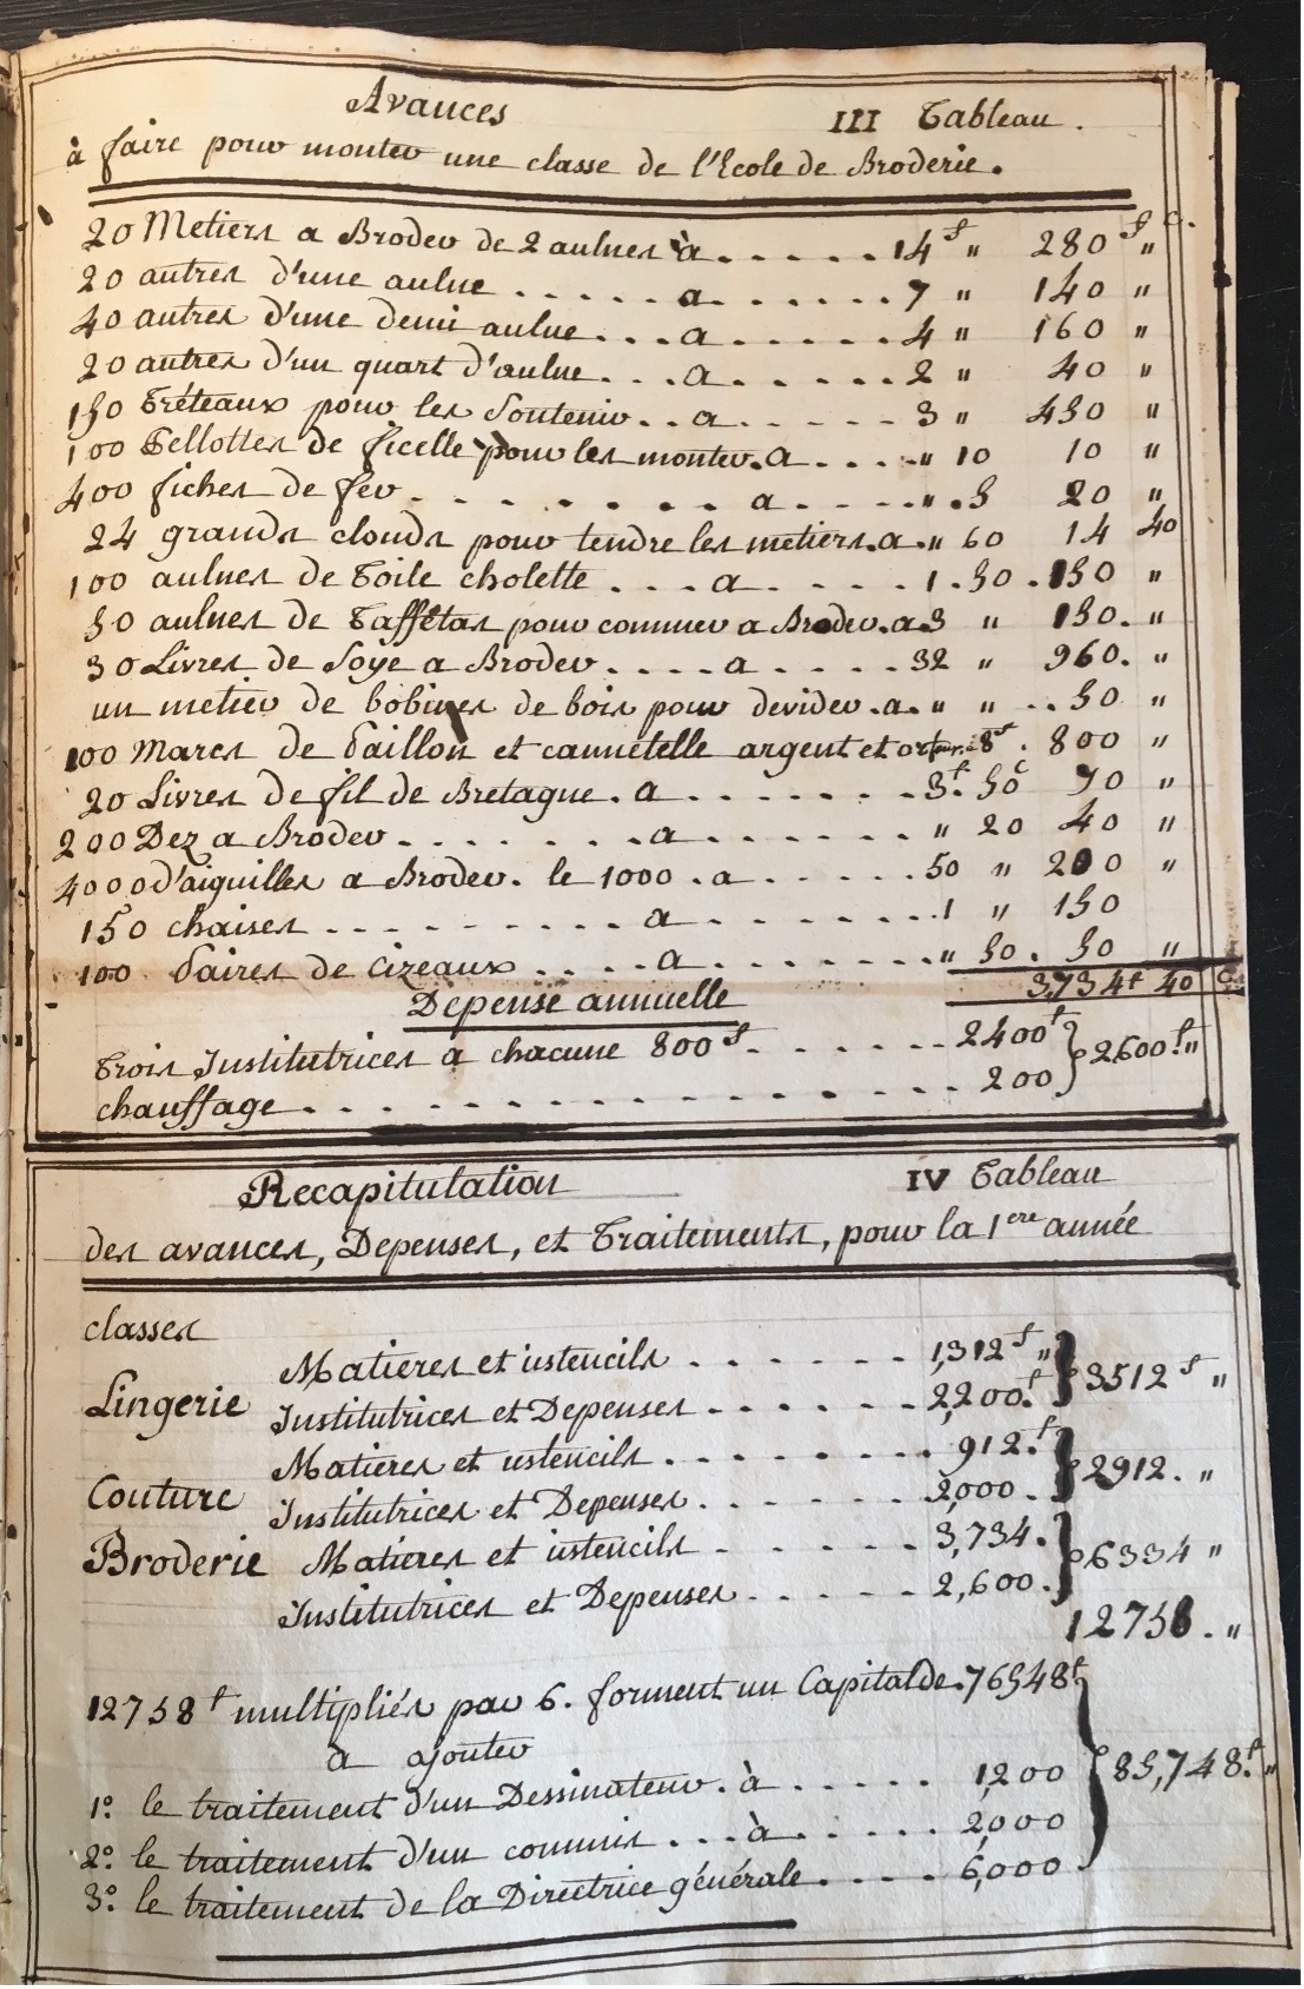 Avances III Tableau.
à faire pour monter une classe de l'Ecole de Broderie.
20 Metiers a Broder de 2 aulnes à . . . . . 14 f " 280 f " c.
20 autres d'une aulne . . . . . a . . . . . . . 7 " 140 "
40 autres d'une demi aulne . . . a . . . . . . 4 " 160 "
20 autres d'un quart d'aulne . . . a . . . . . . 2 " 40 "
150 Tréteaux pour les Soutenir . . a . . . . . 3 " 450 "
100 Pellottes de ficelle pour les monter . a . . . . " 10 10 "
400 fiches de fer . . . . . . . . a . . . . . " . 5 20 "
24 grands clouds pour tendre les metiers . a . " 60 14 40
100 aulnes de Toile cholette . . . a . . . . . 1 . 50 . 150 "
50 aulnes de Taffétas pour commer a Broder . a 3 " 150 . "
30 Livres de Soye a Broder . . . . a . . . . . 32 " 960 . "
un metier de bobines de bois pour devider . a . " " . . 50 "
100 Marcs de Paillon et cannetelle argent et or 8 f . 800 "
20 Livres de fil de Bretagne . a . . . . . . . 3 f . 50 c 70 "
200 Dez a Broder . . . . . . . a . . . . . . " 20 40 "
4000 d'aiguilles a Broder . le 1000 . a . . . . . . 50 " 200 "
150 chaises . . . . . . . . . . a . . . . . . . . 1 " 150
100 Paires de Cizeaux . . . . a . . . . . . . . " 50 . 50 "
3,734 f 40 c.
Depense annuelle
Trois Institutrices a chacune 800 f . . . . . . . 2400 f } 2600 f . "
chauffage . . . . . . . . . . . . . . . . . . 200
Recapitulation IV Tableau
des avances, Depenses, et Traitements, pour la 1ere année
classes
Matieres et ustencils . . . . . . . 1,312 f " } 3512 f "
Lingerie Institutrices et Depenses . . . . . . . 2,200 f .
Matieres et ustencils . . . . . . . . . 912 . f } 2912 . "
Couture Institutrices et Depenses . . . . . . . 2,000 .
Broderie Matieres et ustencils . . . . . . 3,734 . } 6334 "
Institutrices et Depenses . . . . . 2,600 .
12758 . "
12758 f multipliés par 6 . forment un Capital de . 76548 f
a ajouter
1º. le traitement d'un Dessinateur . à . . . . . 1,200 } 85,748 . f "
2º. le traitement d'un commis . . . à . . . . . 2,000
3º. le traitement de la Directrice générale . . . . 6,000